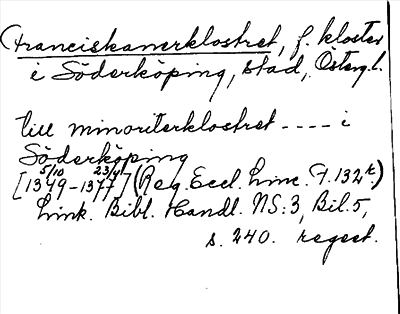 Franciskanerklostret, f. kloster
i Söderköping, stad, Österg. l.
till minoriterklostret ---- i
Söderköping
5/10 23/4
[1349-1377] (Reg. Eccl. Linc. F. 132 r.)
Link. Bibl. Handl. NS:3, Bil. 5,
s. 240. regest.